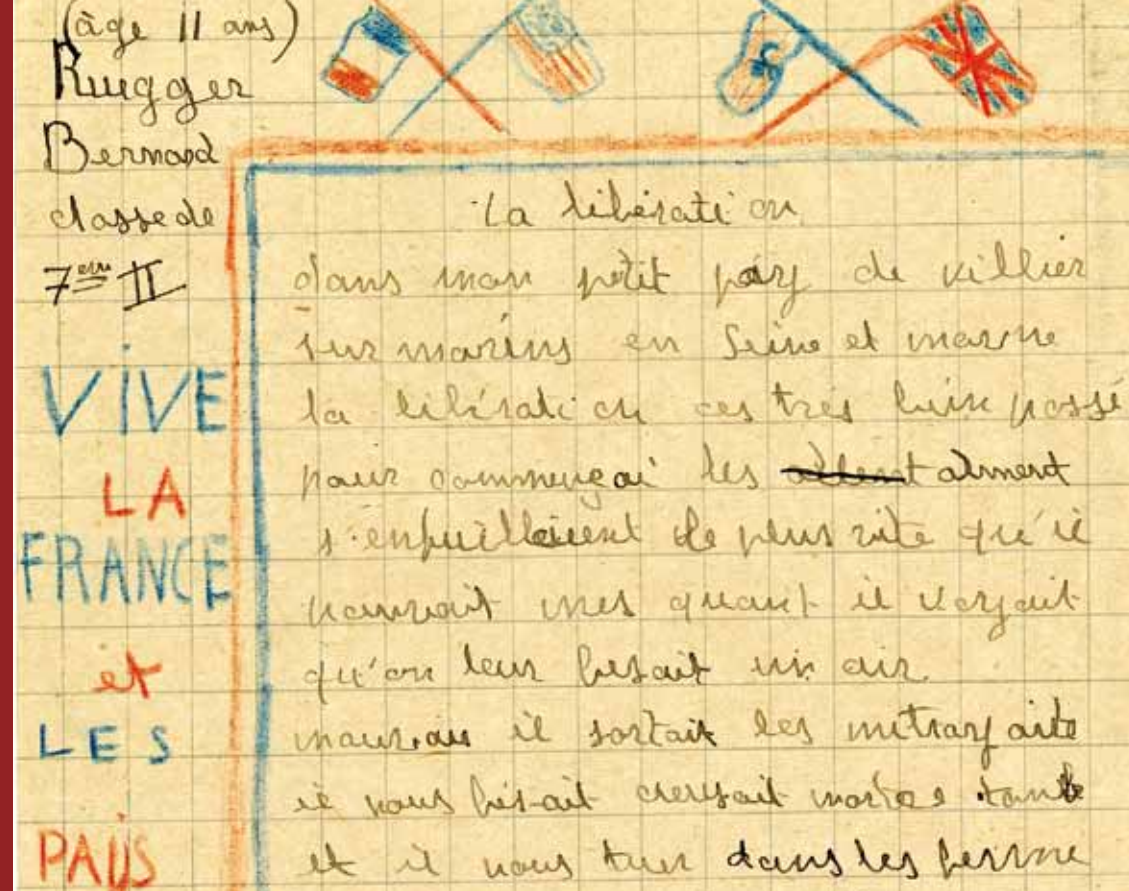 (âge 11 ans)
Ruegger
Bernard
classe de
7ème II
VIVE
LA
FRANCE
et
LES
PAIIS
La libération
dans mon petit pays de villier
sur marins en Seine et marne
la libération ces très bien passé
pour commençai les alment
s'enfuillaient le plus vite qu'il
pouvait mes quant il voyait
qu'on leur fesait un air
mauvais il sortait les mitraillaite
il nous fesait creusait
et il nous tuer dans les ferme